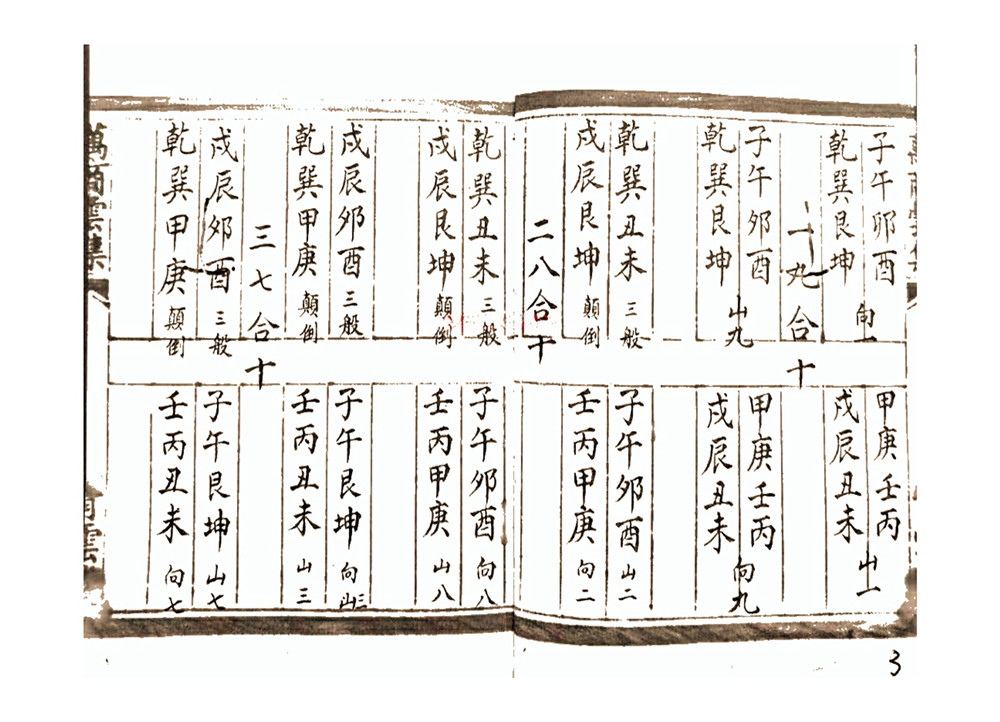 子午卯酉
乾巽艮坤 向一
甲庚壬丙
戌辰丑未 山一
一九合十
子午卯酉
乾巽艮坤 山九
甲庚壬丙
戌辰丑未 向九
乾巽丑未 三般
戌辰艮坤 顛倒
子午卯酉 山二
壬丙甲庚 向二
二八合十
乾巽丑未 三般
戌辰艮坤 顛倒
子午卯酉 向八
壬丙甲庚 山八
戌辰卯酉 三般
乾巽甲庚 顛倒
子午艮坤 向
壬丙丑未 山三
三七合十
戌辰卯酉 三般
乾巽甲庚 顛倒
子午艮坤 山七
壬丙丑未 向七
雲集
雲
3